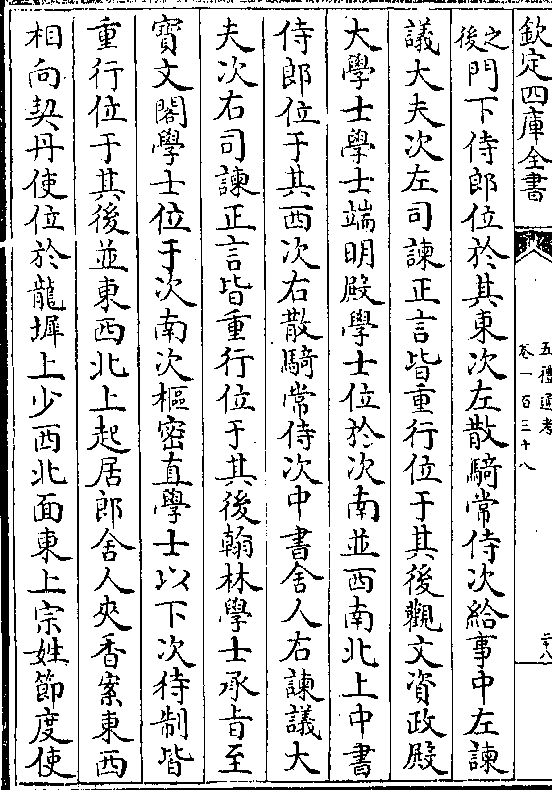 欽定四庫全書
五禮通考
卷一百三十八
二八
之後門下侍郎位於其東次左散騎常侍次給事中左諫
議大夫次左司諫正言皆重行位于其後觀文資政殿
大學士學士端明殿學士位於次南並西南北上中書
侍郎位于其西次右散騎常侍次中書舍人右諫議大
夫次右司諫正言皆重行位于其後翰林學士承旨至
寶文閣學士位于次南次樞密直學士以下次待制皆
重行位于其後並東西北上起居郎舍人夾香案東西
相向契丹使位於龍墀上少西北面東上宗姓節度使